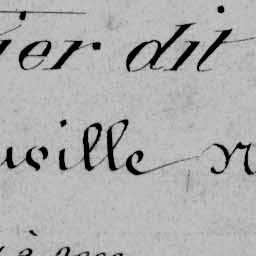 ier dit
uville n
à